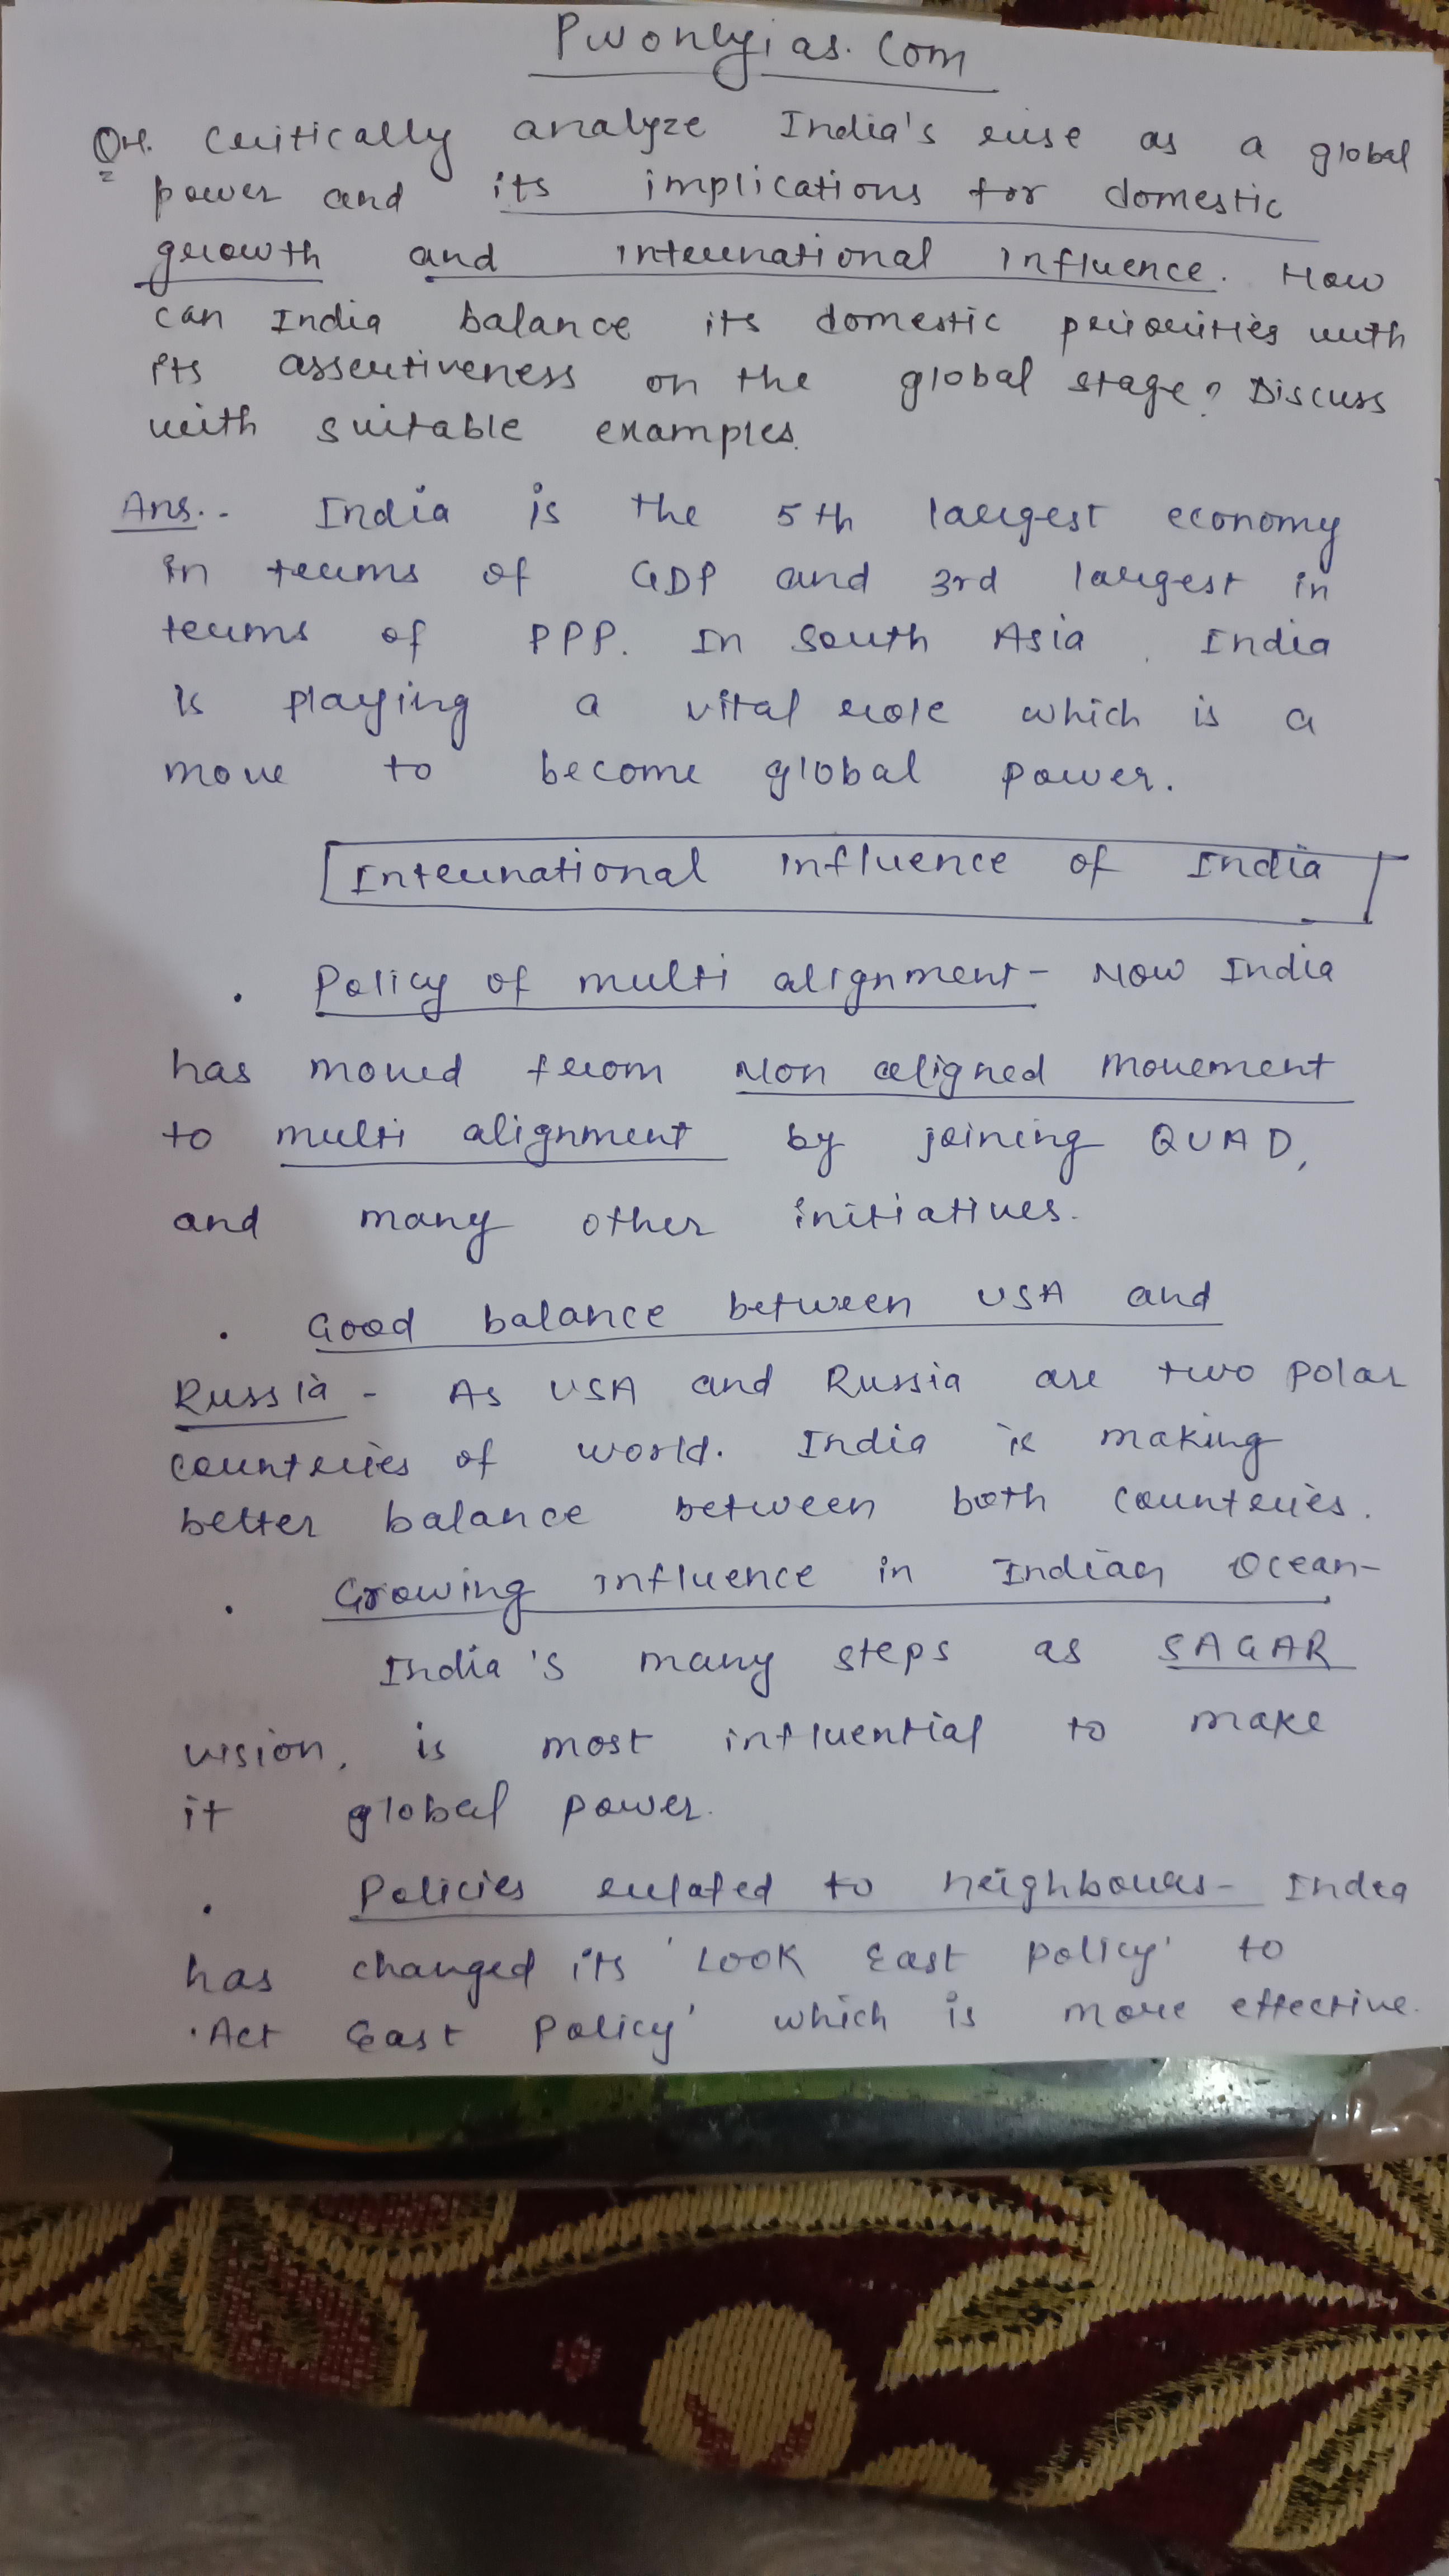 Pwonlyias.com
Q4. Critically analyze India's rise as a global
power and its implications for domestic
growth and international influence. How
can India balance its domestic priorities with
its assertiveness on the global stage? Discuss
with suitable examples.
Ans.- India is the 5th largest economy
in terms of GDP and 3rd largest in
terms of PPP. In South Asia, India
is playing a vital role which is a
move to become global power.
International influence of India
. Policy of multi alignment- Now India
has moved from Non aligned movement
to multi alignment by joining QUAD,
and many other initiatives.
. Good balance between USA and
Russia - As USA and Russia are two polar
countries of world. India is making
better balance between both countries.
. Growing influence in Indian Ocean-
India's many steps as SAGAR
vision, is most influential to make
it global power.
. Policies related to neighbours- India
has changed its 'Look East policy' to
'Act East Policy' which is more effective.